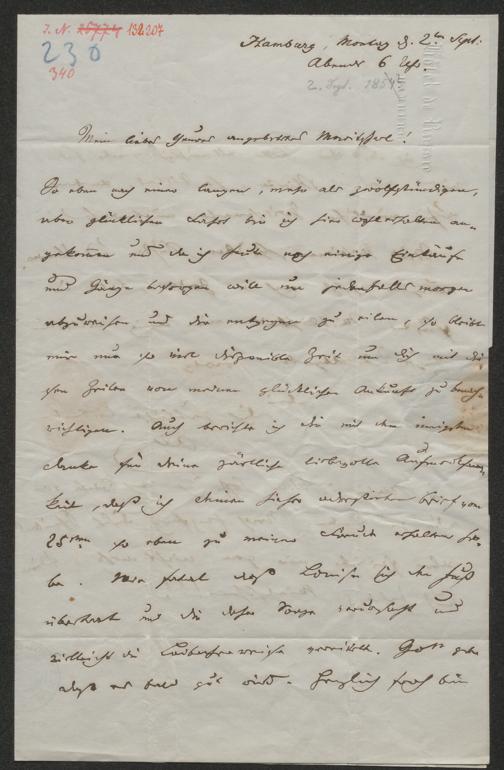 I. N. 25774 132.207
230
340
Hamburg, Montag d. 2ten Sept.
Abends 6 Uhr.
2. Sept. 185
Mein lieber theures angebetetes Moritzerl!
So eben nach einer langen, mehr als zwölfstündigen,
aber glücklichen Fahrt bin ich hier wohlerhalten an-
gekommen und da ich heute noch einige Einkäufe
und Gänge besorgen will um jedenfalls morgen
abzureisen und dir entgegen zu eilen, so bleibt
mir nur so viel disponible Zeit um dich mit die-
sen Zeilen von meiner glücklichen Ankunft zu benach-
richtigen. Auch berichte ich dir mit dem innigsten
Danke für deine zärtliche liebevolle Aufmerksam-
keit, daß ich deinen lieben Brief vom
25sten so eben zu meiner Freude erhalten ha-
be. Wie fatal daß Louise sich den Fuß
und dir daher Sorge verursacht und
vielleicht die vereitelt. Gott gebe
daß es bald gut wird. Herzlich froh bin